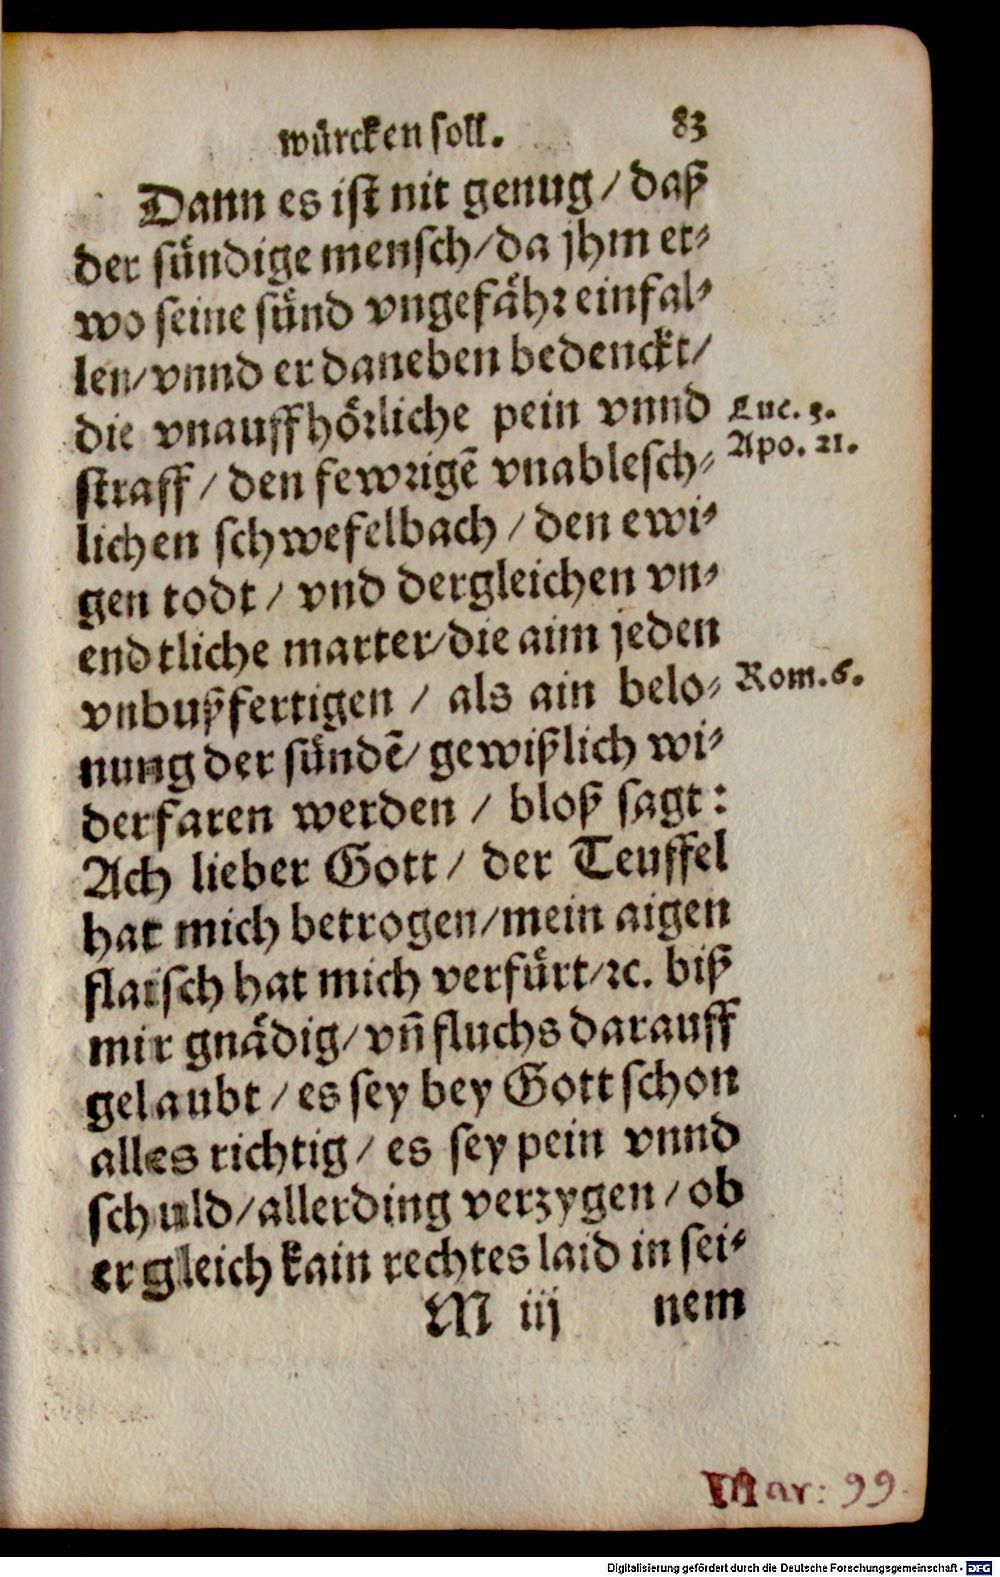 würcken soll. 83
Dann es ist nit genug / daß
der sündige mensch / da jhm et⸗
wo seine sünd vngefähr einfal⸗
len / vnnd er daneben bedenckt /
die vnauffhörliche pein vnnd
Luc. 3.
straff / den fewrigē vnablesch⸗
Apo. 21.
lichen schwefelbach / den ewi⸗
gen todt / vnd dergleichen vn⸗
endtliche marter / die aim jeden
vnbußfertigen / als ain belo⸗
Rom. 6.
nung der sündē / gewißlich wi⸗
derfaren werden / bloß sagt:
Ach lieber Gott / der Teuffel
hat mich betrogen / mein aigen
flaisch hat mich verfürt / ꝛc. biß
mir gnädig / vñ fluchs darauff
gelaubt / es sey bey Gott schon
alles richtig / es sey pein vnnd
schuld / allerding verzygen / ob
er gleich kain rechtes laid in sei⸗
M iij nem
Mar: 99.
Digitalisierung gefördert durch die Deutsche Forschungsgemeinschaft - DFG